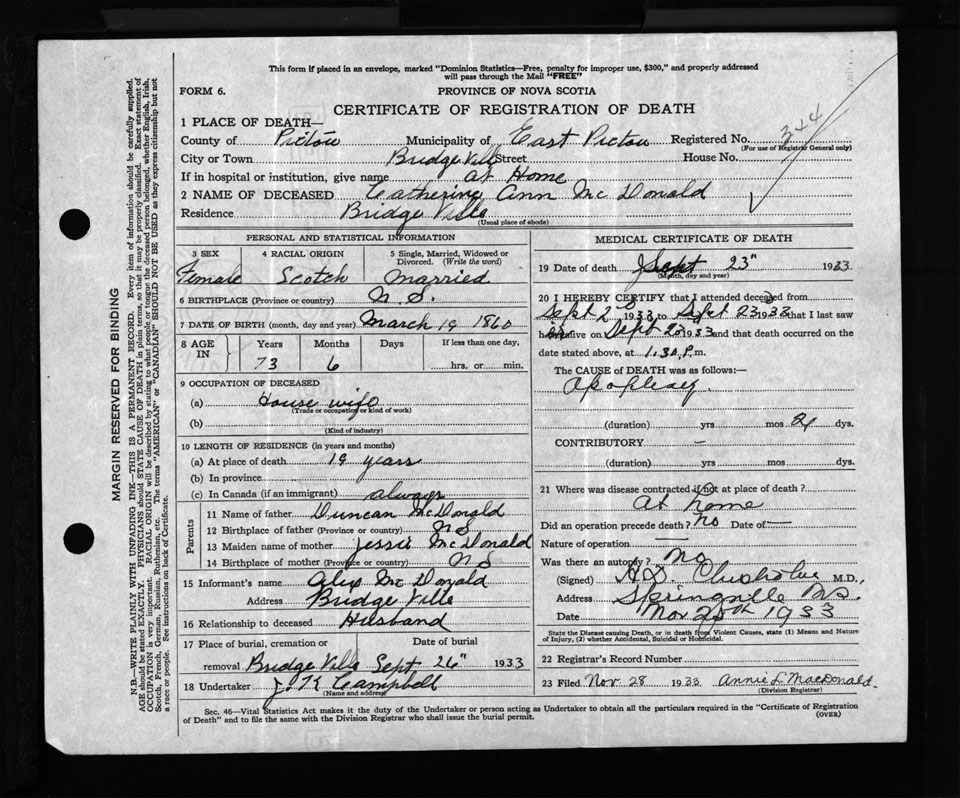 This form if placed in an envelope, marked "Dominion Statistics—Free, penalty for improper use, $300," and properly addressed
will pass through the Mail "FREE"
FORM 6. PROVINCE OF NOVA SCOTIA
CERTIFICATE OF REGISTRATION OF DEATH
1 PLACE OF DEATH—
County of Pictou Municipality of East Pictou Registered No. 344
(For use of Registrar General only)
City or Town Bridge Ville Street House No.
If in hospital or institution, give name at Home
2 NAME OF DECEASED Catherine Ann McDonald
Residence Bridge Ville
(Usual place of abode)
PERSONAL AND STATISTICAL INFORMATION
3 SEX 4 RACIAL ORIGIN 5 Single, Married, Widowed or
Divorced. (Write the word)
Female Scotch Married
6 BIRTHPLACE (Province or country) N.S.
7 DATE OF BIRTH (month, day and year) March 19 1860
8 AGE IN Years Months Days If less than one day,
73 6 hrs. or min.
9 OCCUPATION OF DECEASED
(a) House wife
(Trade or occupation or kind of work)
(b)
(Kind of industry)
10 LENGTH OF RESIDENCE (in years and months)
(a) At place of death 19 years
(b) In province
(c) In Canada (if an immigrant) always
Parents
11 Name of father Duncan McDonald
12 Birthplace of father (Province or country) N.S
13 Maiden name of mother Jessie McDonald
14 Birthplace of mother (Province or country) N S
15 Informant's name Alex McDonald
Address Bridge Ville
16 Relationship to deceased Husband
17 Place of burial, cremation or Date of burial
removal Bridge Ville Sept 26" 1933
18 Undertaker J. K Campbell
(Name and address)
MEDICAL CERTIFICATE OF DEATH
19 Date of death Sept 23" 1933
(Month, day and year)
20 I HEREBY CERTIFY that I attended deceased from
Sept 2 1933 to Sept 23 1933 that I last saw
alive on Sept 23 1933 and that death occurred on
date stated above, at 1.30 P.m.
The CAUSE of DEATH was as follows:—
Apoplexy
(duration) yrs mos 21 dys.
CONTRIBUTORY —
(duration) yrs mos dys.
21 Where was disease contracted if not at place of death?
At home
Did an operation precede death? No Date of —
Nature of operation —
Was there an autopsy? no
(Signed) Chisholm M.D.,
Address Springville N.S.
Date Nov 25th 1933
State the Disease causing Death, or in death from Violent Causes, state (1) Means and Nature
of Injury, (2) whether Accidental, Suicidal or Homicidal.
22 Registrar's Record Number
23 Filed Nov. 28 1933 Annie L MacDonald.
(Division Registrar)
Sec. 46—Vital Statistics Act makes it the duty of the Undertaker or person acting as Undertaker to obtain all the particulars required in the "Certificate of Registration
of Death" and to file the same with the Division Registrar who shall issue the burial permit. (OVER)
MARGIN RESERVED FOR BINDING
N.B.—WRITE PLAINLY WITH UNFADING INK—THIS IS A PERMANENT RECORD. Every item of information should be carefully supplied.
AGE should be stated EXACTLY. PHYSICIANS should STATE CAUSE OF DEATH in plain terms, so that it may be properly classified. Exact statement of
OCCUPATION is very important. RACIAL ORIGIN will be described by stating to what people or tongue the deceased person belonged, whether English, Irish,
Scotch, French, German, Russian, Ruthenian, etc. The terms "AMERICAN" or "CANADIAN" SHOULD NOT BE USED as they express citizenship but not
a race or people. See instructions on back of Certificate.